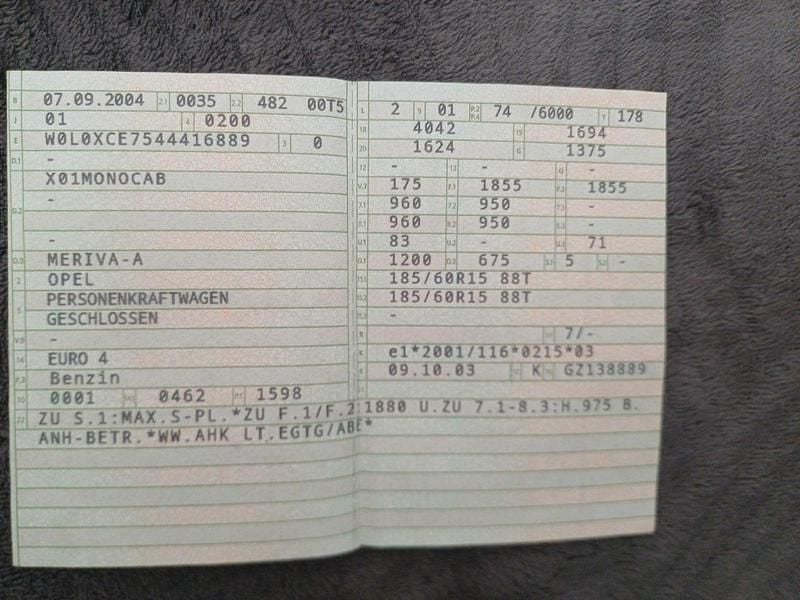 B 07.09.2004 2.1 0035 2.2 482 00T5
J 01 4 0200
E W0L0XCE7544416889 3 0
D.1 -
X01MONOCAB
D.2 -
-
D.3 MERIVA-A
2 OPEL
5 PERSONENKRAFTWAGEN
GESCHLOSSEN
V.9 -
14 EURO 4
P.3 Benzin
10 0001 14.1 0462 P.1 1598
L 2 9 01 P.2 P.4 74 /6000 T 178
18 4042 19 1694
20 1624 G 1375
12 - 13 - Q -
V.7 175 F.1 1855 F.2 1855
7.1 960 7.2 950 7.3 -
8.1 960 8.2 950 8.3 -
U.1 83 U.2 - U.3 71
O.1 1200 O.2 675 S.1 5 S.2 -
15.1 185/60R15 88T
15.2 185/60R15 88T
15.3 -
R 11 7/-
K e1*2001/116*0215*03
6 09.10.03 17 K 16 GZ138889
21
22 ZU S.1:MAX.S-PL.*ZU F.1/F.2:1880 U.ZU 7.1-8.3:H.975 B.
ANH-BETR.*WW.AHK LT.EGTG/ABE*